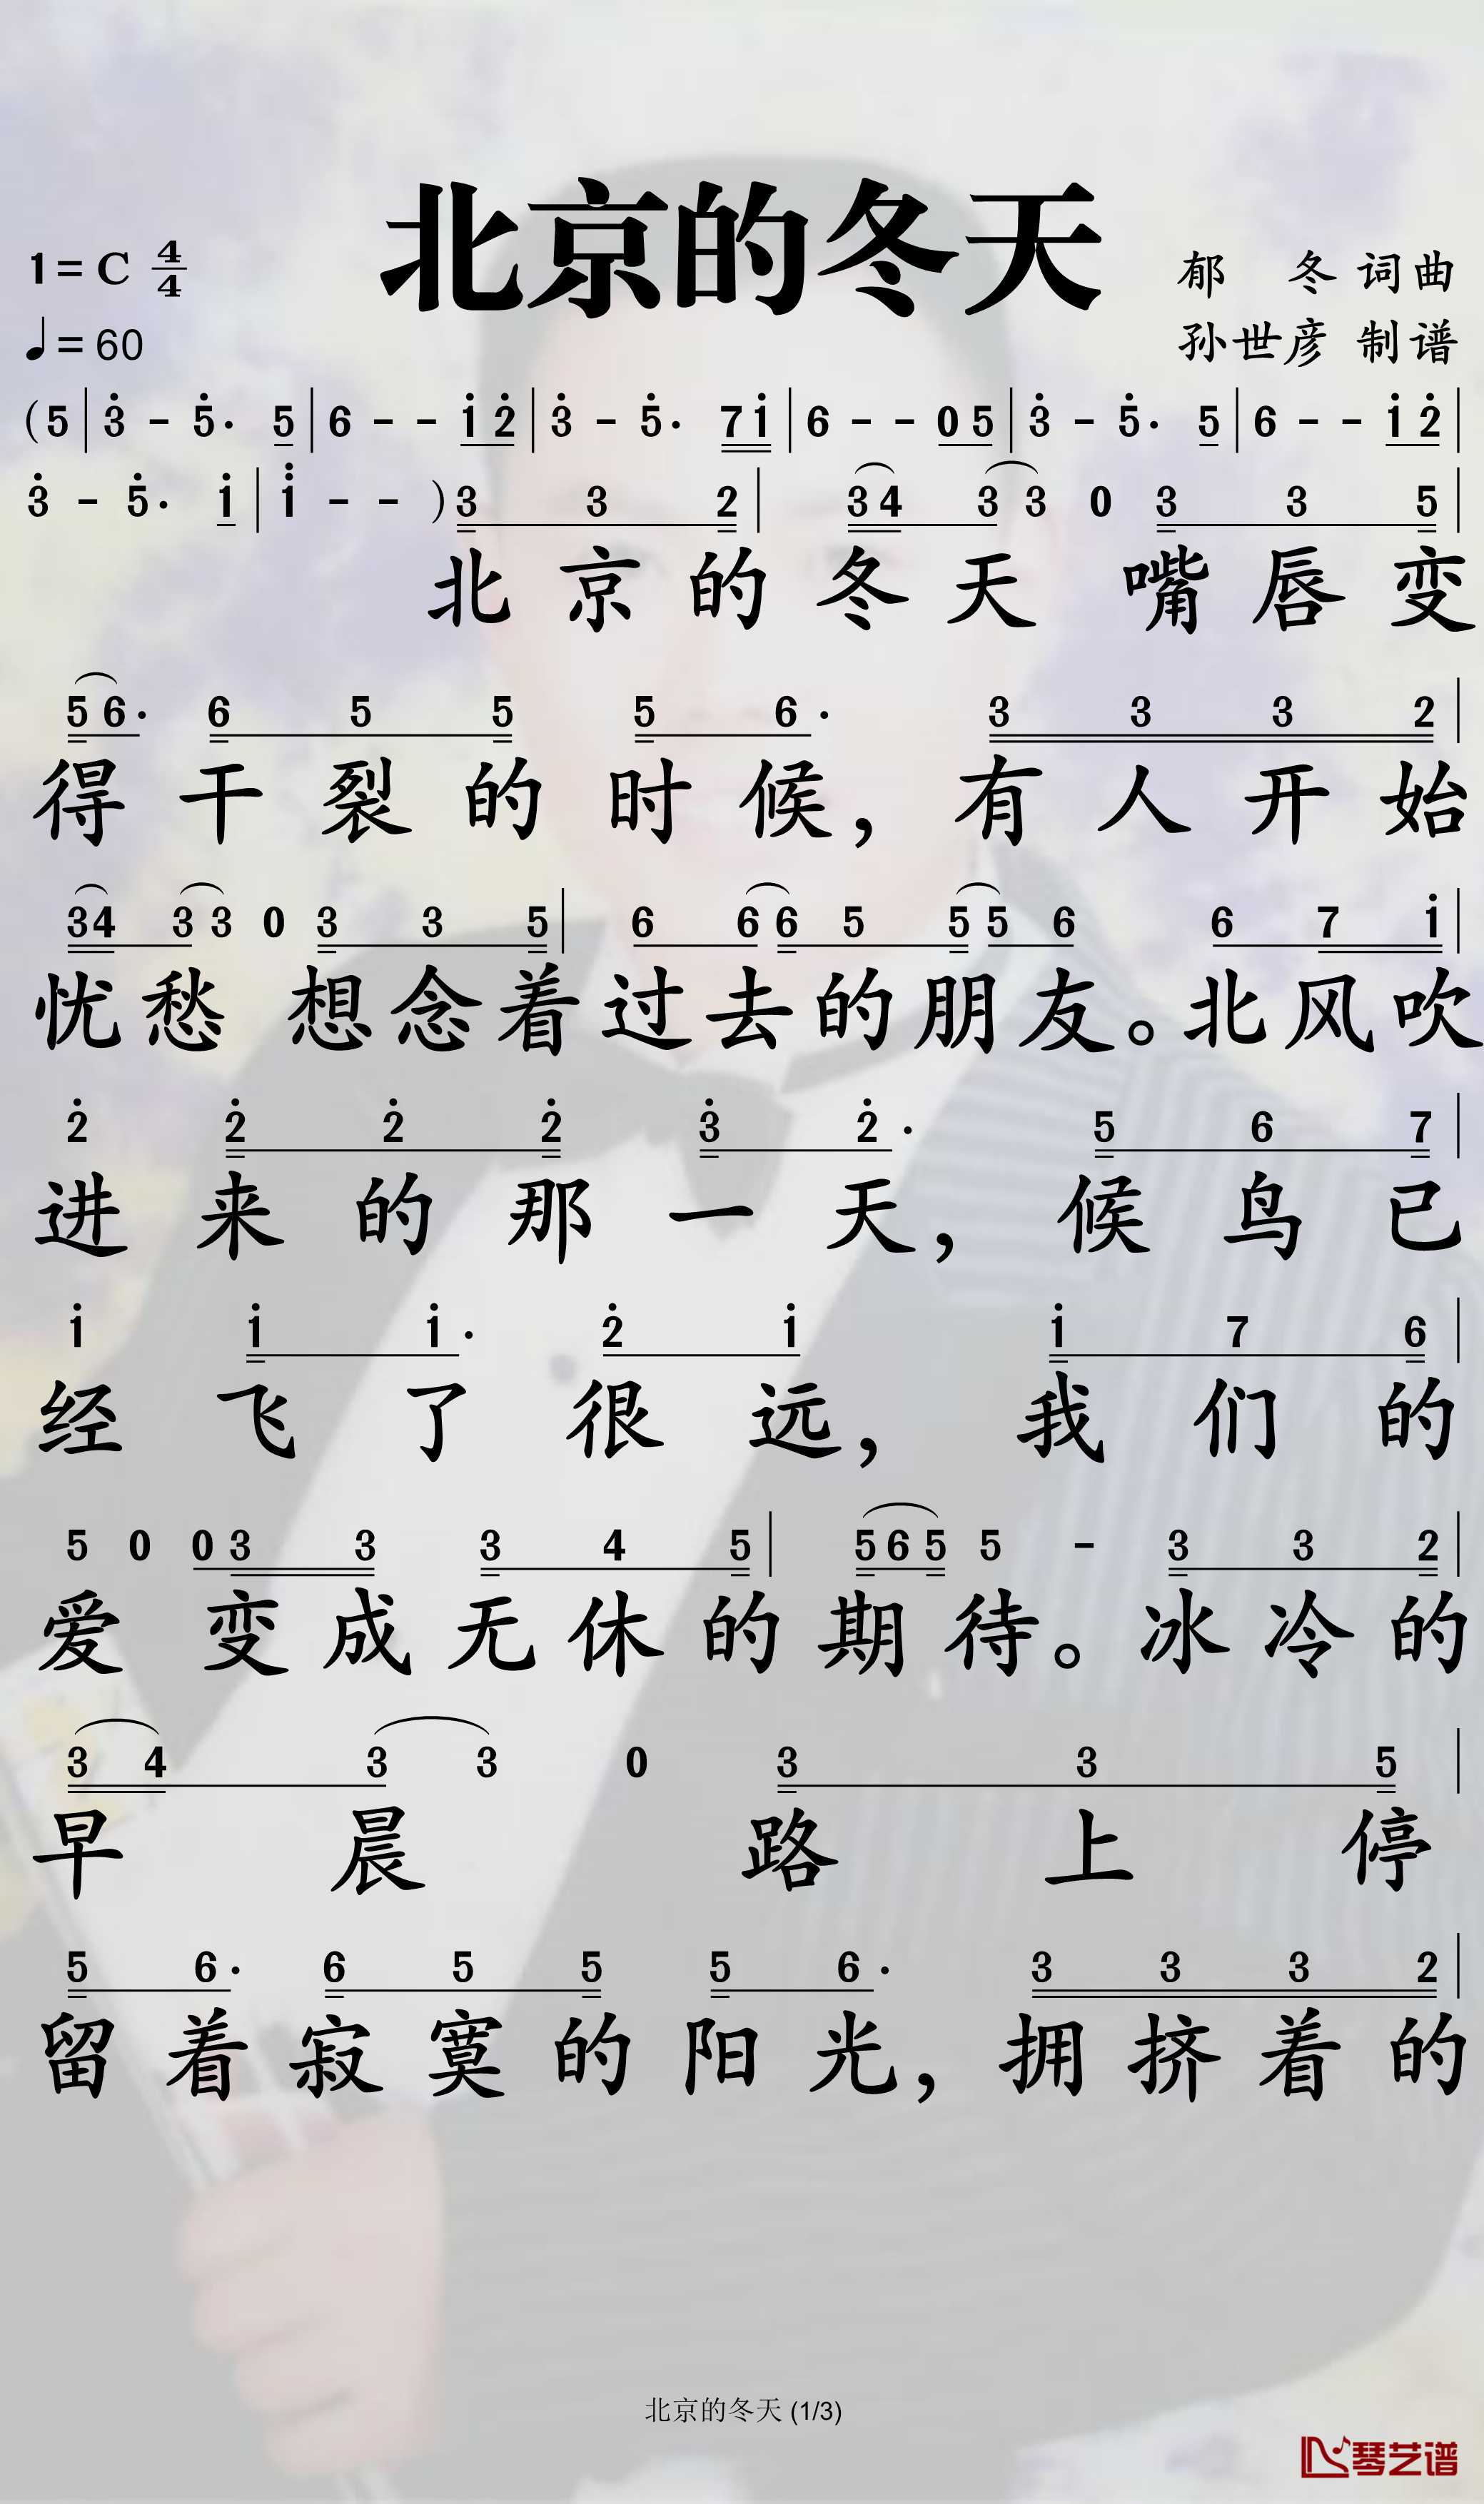 北京的冬天
1=C 4/4
郁 冬 词曲
♩=60
孙世彦 制谱
(5 | 3̇ - 5̇. 5 | 6 - - 1̇ 2̇ | 3̇ - 5̇. 7 1̇ | 6 - - 0 5 | 3̇ - 5̇. 5 | 6 - - 1̇ 2̇ |
3̇ - 5̇. 1̇ | 1̇ - - ) 3 3 2 | 3 4 3 3 0 3 3 5 |
北 京 的 冬 天 嘴 唇 变
5 6. 6 5 5 5 6. 3 3 3 2 |
得 干 裂 的 时 候， 有 人 开 始
3 4 3 3 0 3 3 5 | 6 6 6 5 5 5 6 6 7 1̇ |
忧 愁 想 念 着 过 去 的 朋 友。 北 风 吹
2̇ 2̇ 2̇ 2̇ 3̇ 2̇. 5 6 7 |
进 来 的 那 一 天， 候 鸟 已
1̇ 1̇ 1̇. 2̇ 1̇ 1̇ 7 6 |
经 飞 了 很 远， 我 们 的
5 0 0 3 3 3 4 5 | 5 6 5 5 - 3 3 2 |
爱 变 成 无 休 的 期 待。 冰 冷 的
3 4 3 3 0 3 3 5 |
早 晨 路 上 停
5 6. 6 5 5 5 6. 3 3 3 2 |
留 着 寂 寞 的 阳 光， 拥 挤 着 的
北京的冬天 (1/3)
琴艺谱